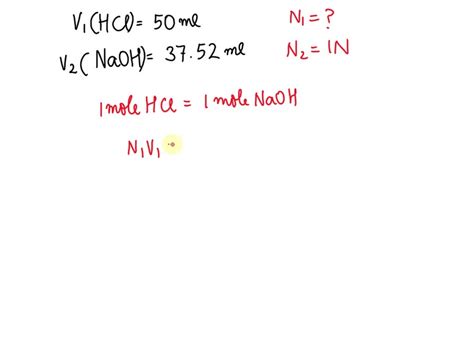 V₁(HCl)= 50 ml
N₁ = ?
V₂(NaOH)= 37.52 ml
N₂ = 1N
1 mole HCl = 1 mole NaOH
N₁V₁